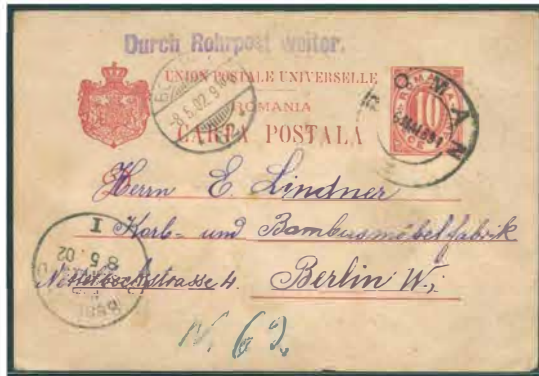 Durch Rohrpost weiter.
UNION POSTALE UNIVERSELLE
ROMANIA
CARTA POSTALA
ROMANIA
10
ROMAN
8.5.02.9
Herrn E. Lindner
Korb- und Bambusmöbelfabrik
strasse 4. Berlin W.,
I
8 5. 02
N. 62